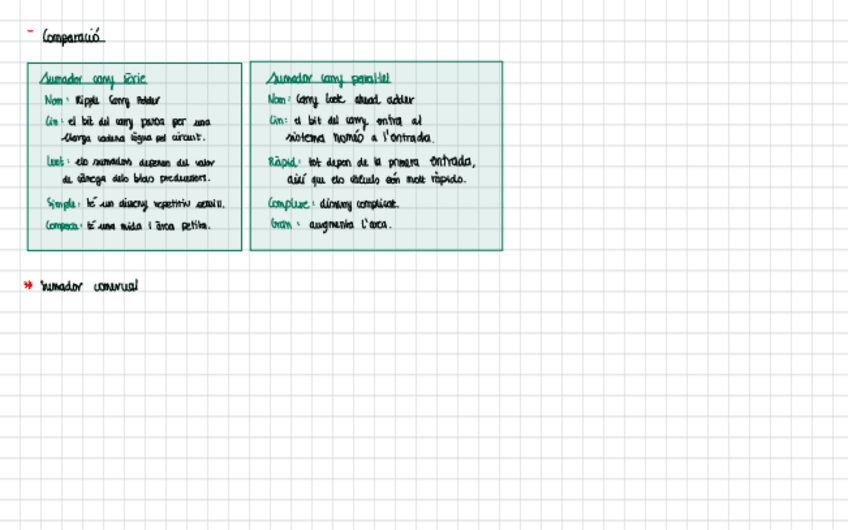 - Comparació
Sumador carry sèrie
Nom: Ripple Carry Adder
Cin: el bit del carry passa per una
llarga cadena lògica pel circuit.
Lent: els sumadors depenen del valor
de càrrega dels blocs predecessors.
Simple: té un disseny repetitiu senzill.
Compacte: té una mida i àrea petita.
Sumador carry paral·lel
Nom: Carry look ahead adder
Cin: el bit del carry entra al
sistema només a l'entrada.
Ràpid: tot depen de la primera entrada,
així que els càlculs són molt ràpids.
Complexe: disseny complicat.
Gran: augmenta l'àrea.
Sumador comercial